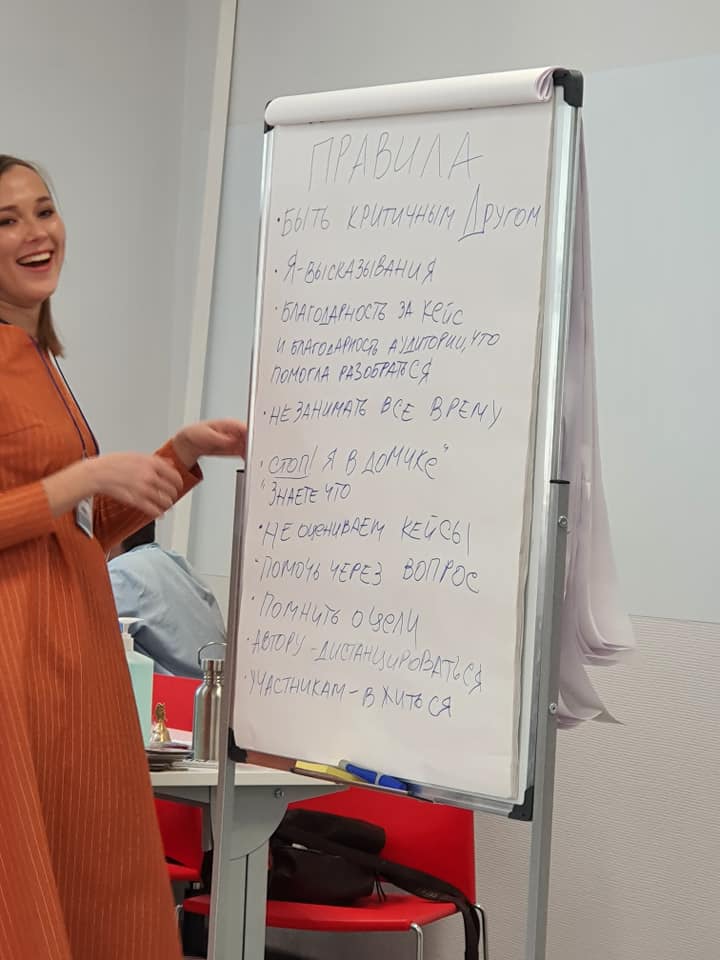 ПРАВИЛА
• БЫТЬ КРИТИЧНЫМ ДРУГОМ
• Я-ВЫСКАЗЫВАНИЯ
• БЛАГОДАРНОСТЬ ЗА КЕЙС
И БЛАГОДАРНОСТЬ АУДИТОРИИ, ЧТО
ПОМОГЛА РАЗОБРАТЬСЯ
• НЕ ЗАНИМАТЬ ВСЕ ВРЕМУ
• СТОП! Я В ДОМИКЕ"
"ЗНАЕТЕ ЧТО
• НЕ ОЦЕНИВАЕМ КЕЙСЫ
• ПОМОЧЬ ЧЕРЕЗ ВОПРОС
• ПОМНИТЬ О ЦЕЛИ
• АВТОРУ - ДИСТАНЦИРОВАТЬСЯ
• УЧАСТНИКАМ - ВЖИТЬСЯ